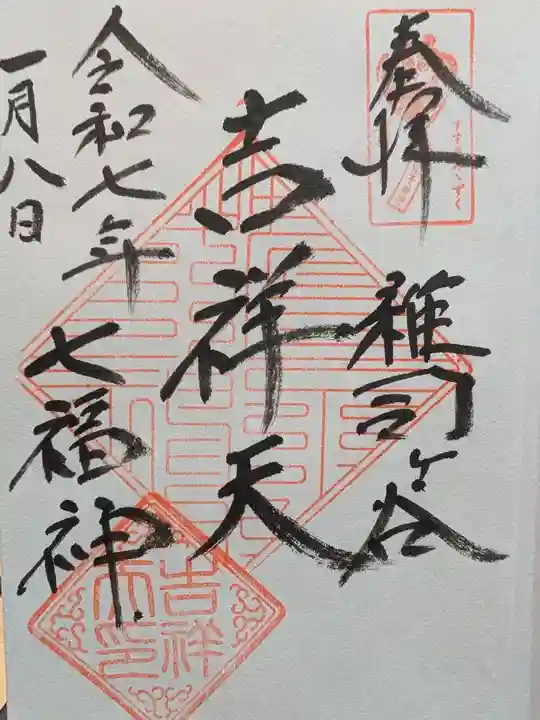 奉拝
雑司ヶ谷
吉祥天
七福神
令和七年
一月八日
吉祥
天印